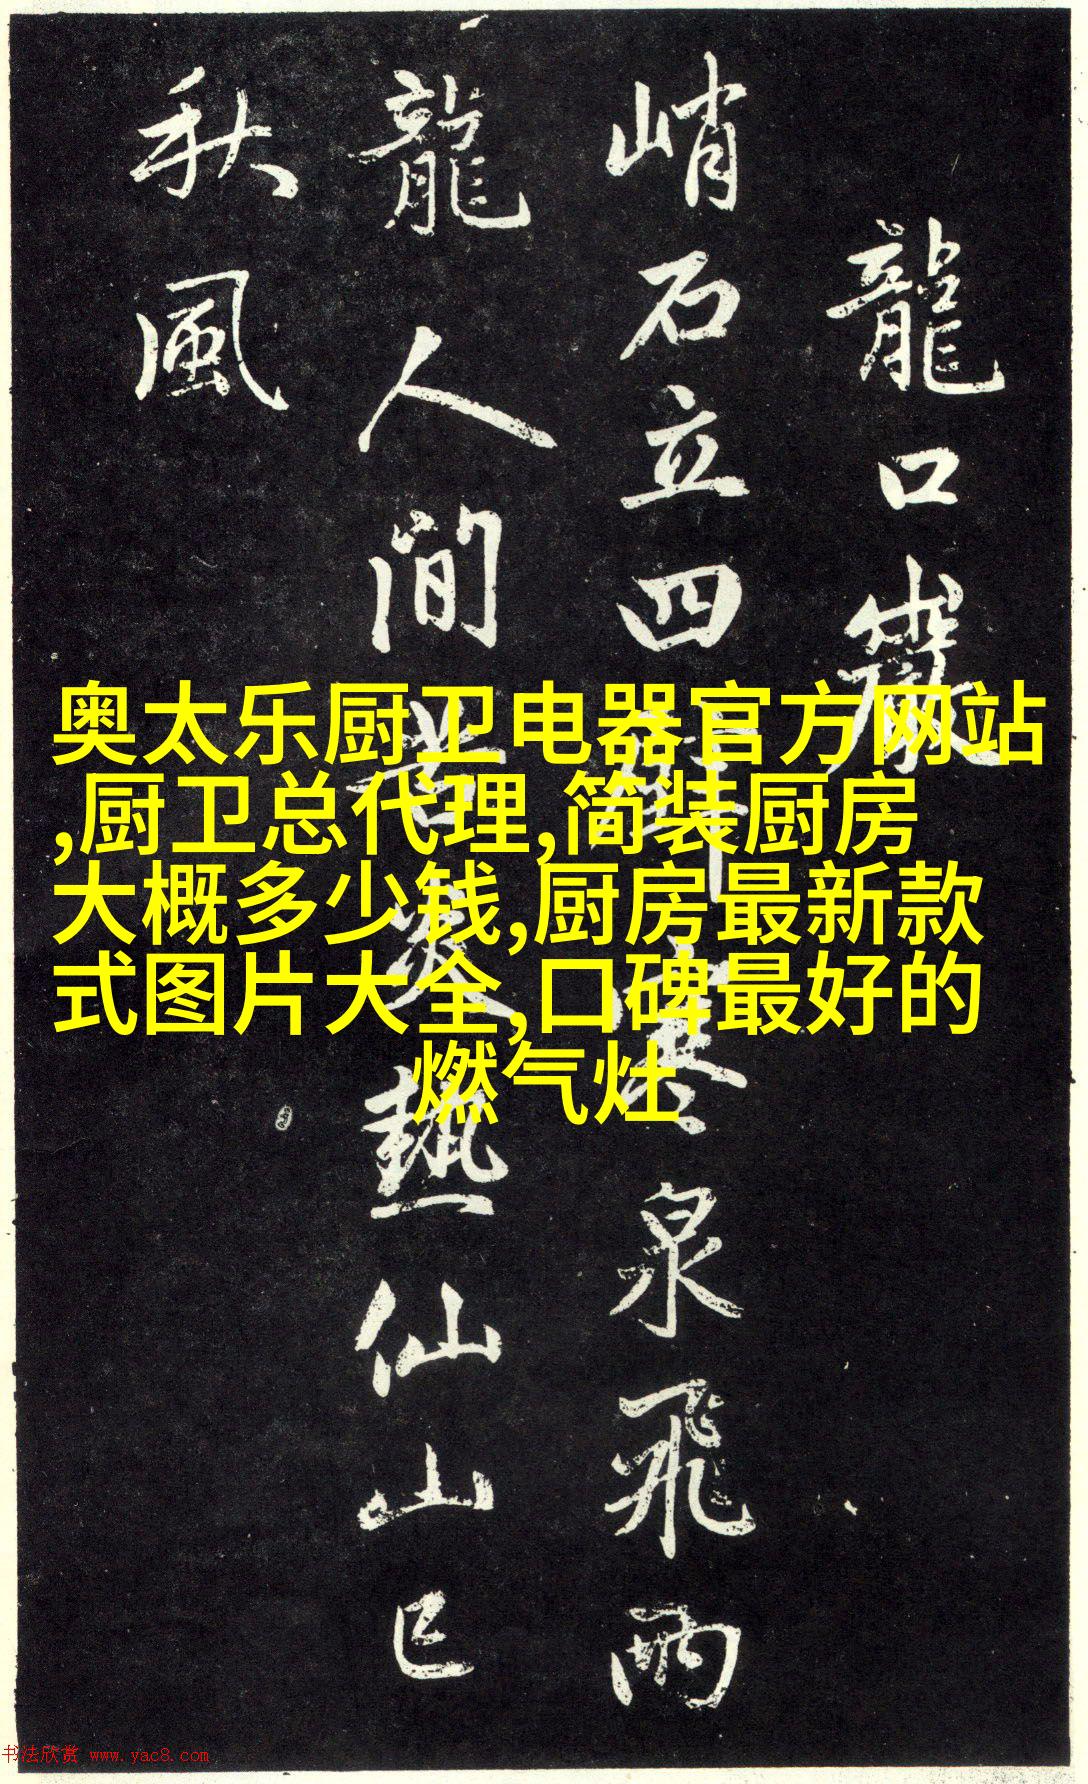 龍口巖
峭石立四壁寒泉飛兩
龍人間苦炎熱仙山已
秋風
奥太乐厨卫电器官方网站
,厨卫总代理,简装厨房
大概多少钱,厨房最新款
式图片大全,口碑最好的
燃气灶
书法欣赏 www.yac8.com